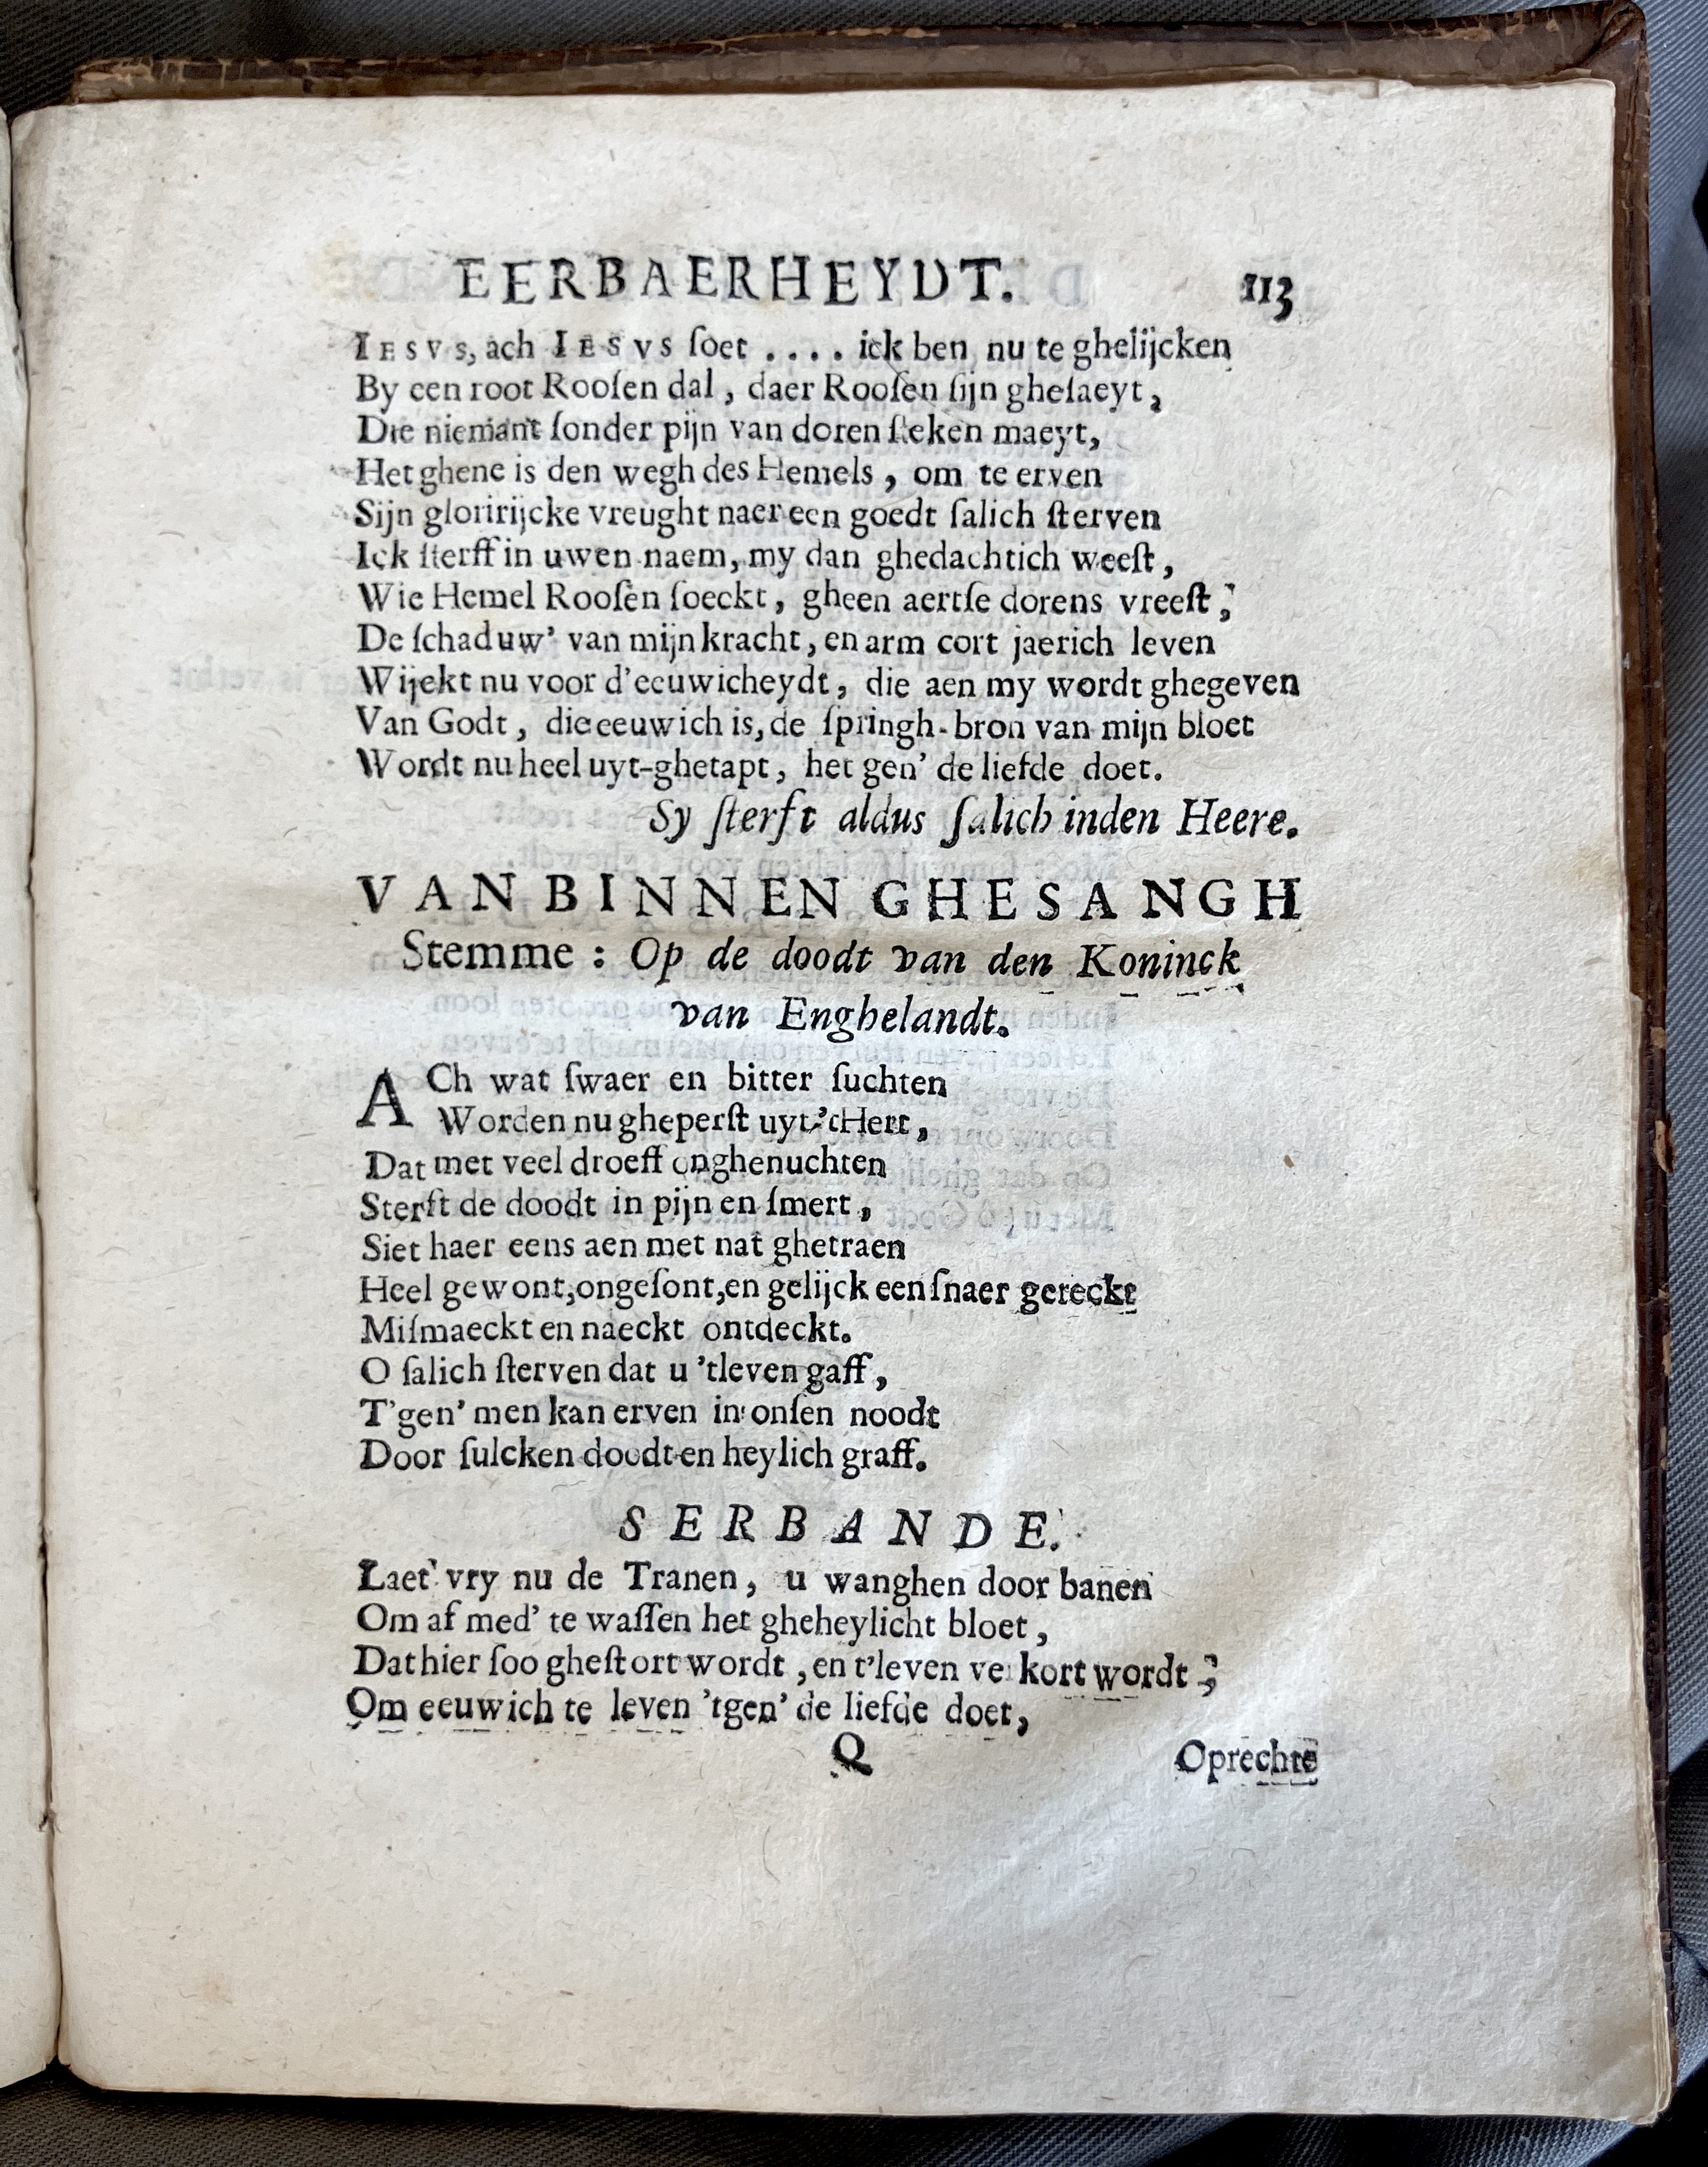 EERBAERHEYDT. 113
IESVS, ach IESVS ſoet .... ick ben nu te ghelijcken
By een root Rooſen dal, daer Rooſen ſijn gheſaeyt,
Die niemant ſonder pijn van doren ſteken maeyt,
Het ghene is den wegh des Hemels, om te erven
Sijn gloririjcke vreught naer een goedt ſalich ſterven
Ick ſterff in uwen naem, my dan ghedachtich weeſt,
Wie Hemel Rooſen ſoeckt, gheen aertſe dorens vreeſt;
De ſchaduw' van mijn kracht, en arm cort jaerich leven
Wijckt nu voor d'eeuwicheydt, die aen my wordt ghegeven
Van Godt, die eeuwich is, de ſpringh-bron van mijn bloet
Wordt nu heel uyt-ghetapt, het gen' de liefde doet.
Sy ſterft aldus ſalich inden Heere.
VAN BINNEN GHESANGH
Stemme: Op de doodt van den Koninck
van Enghelandt.
ACh wat ſwaer en bitter ſuchten
Worden nu gheperſt uyt 'tHert,
Dat met veel droeff onghenuchten
Sterft de doodt in pijn en ſmert,
Siet haer eens aen met nat ghetraen
Heel gewont, ongeſont, en gelijck een ſnaer gereckt
Miſmaeckt en naeckt ontdeckt.
O ſalich ſterven dat u 'tleven gaff,
T'gen' men kan erven in onſen noodt
Door ſulcken doodt en heylich graff.
SERBANDE.
Laet vry nu de Tranen, u wanghen door banen
Om af med' te waſſen het gheheylicht bloet,
Dat hier ſoo gheſtort wordt, en t'leven verkort wordt;
Om eeuwich te leven 'tgen' de liefde doet,
Q Oprechte